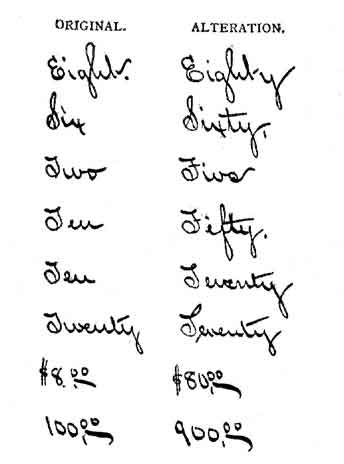 ORIGINAL. ALTERATION.
Eight. Eighty
Six Sixty,
Two Five
Ten Fifty.
Ten Seventy
Twenty Seventy
$8.00 $80.00
100.00 900.00